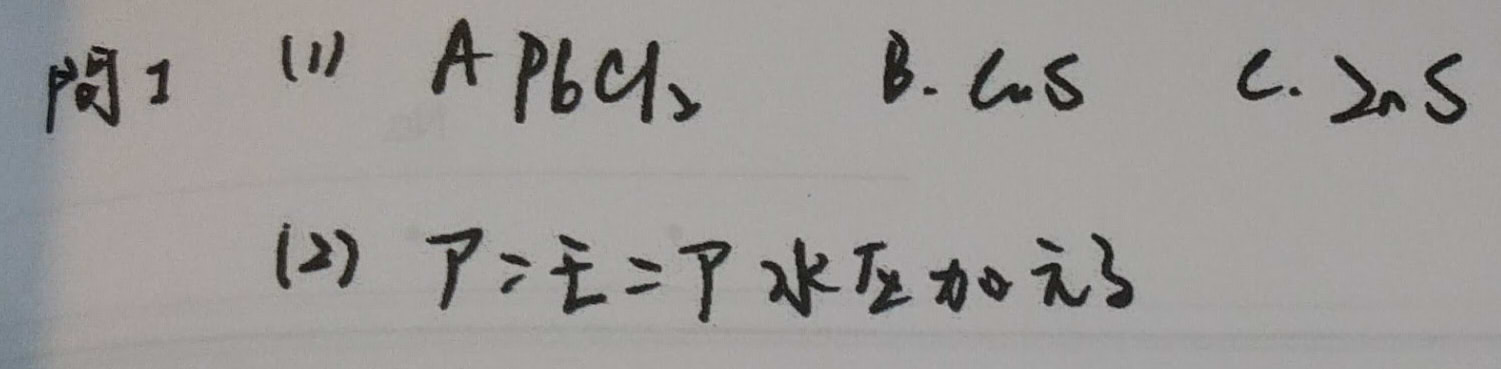 問1 (1) A PbCl₂ B. CuS C. ZnS
(2) アンモニア水を加える